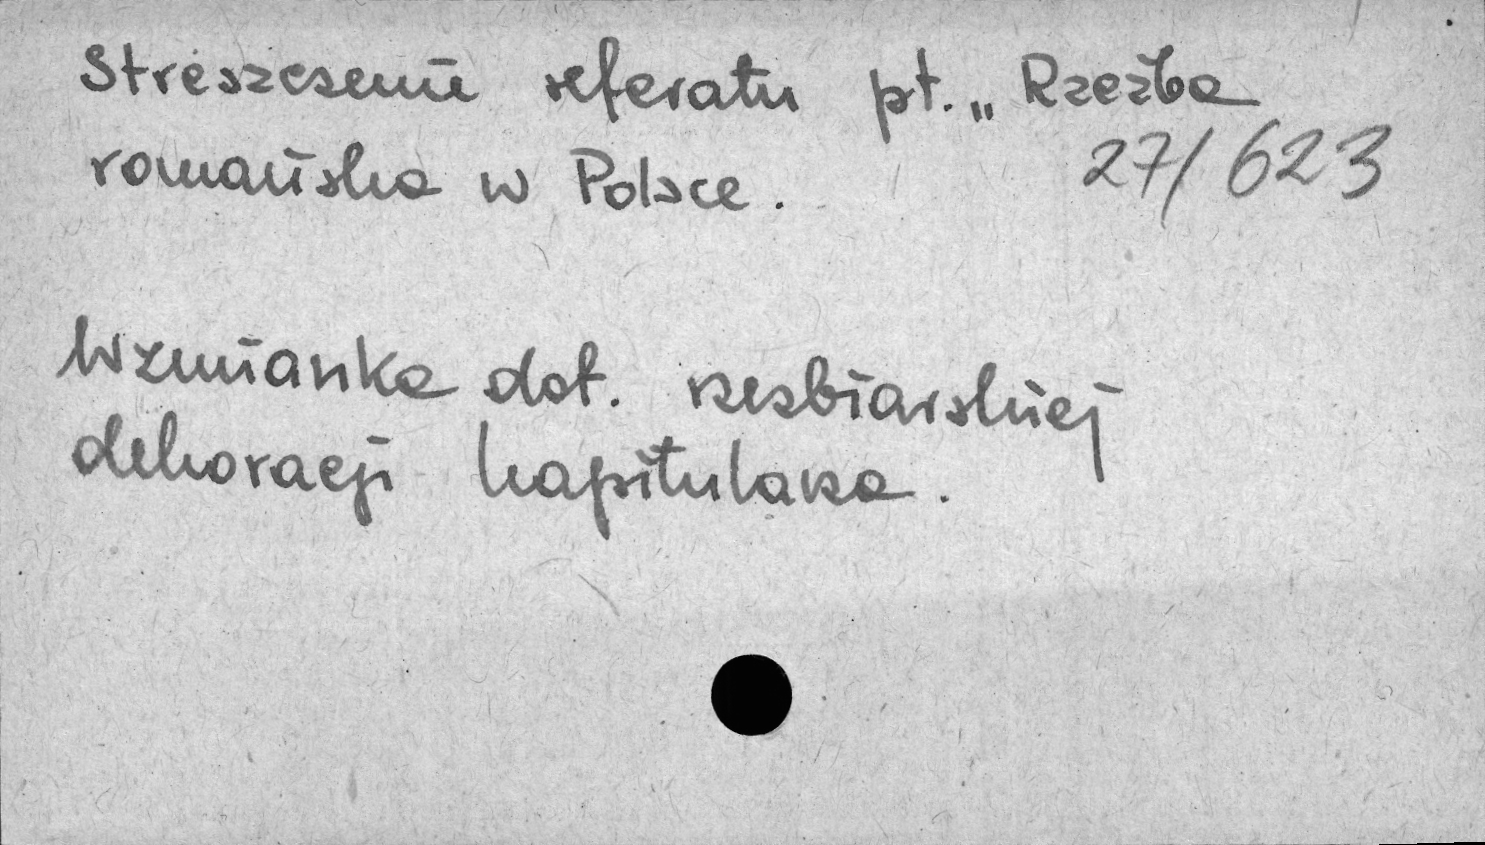 Streszczenie referatu pt. „Rzeźba
romańska w Polsce.
27/623
Wzmianka dot. rzeźbiarskiej
dekoracji kapitularza.